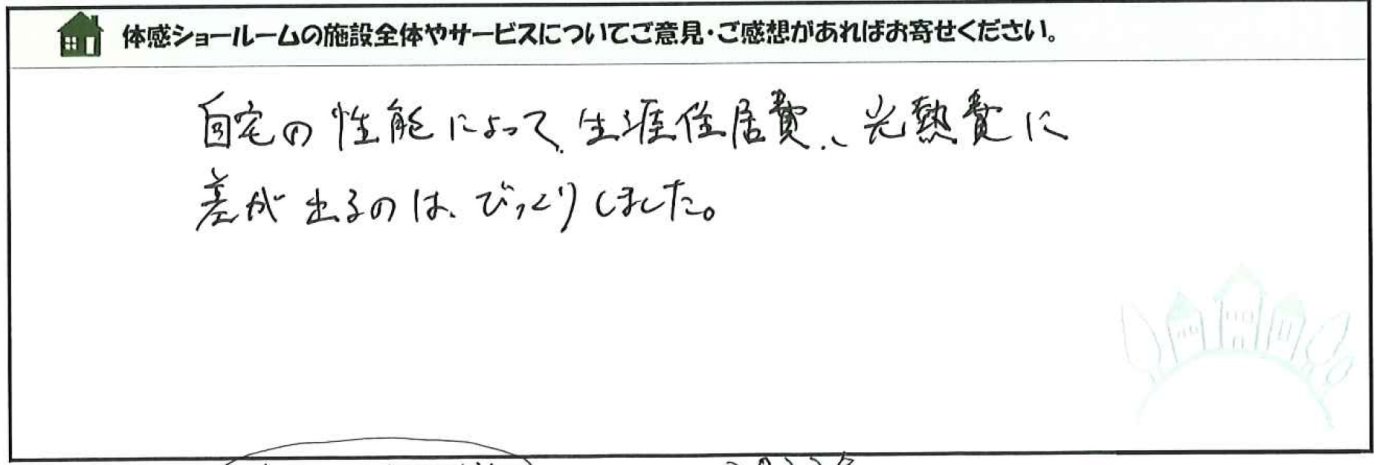 体感ショールームの施設全体やサービスについてご意見・ご感想があればお寄せください。
自宅の性能によって、生涯住居費、光熱費に
差が出るのは、びっくりしました。